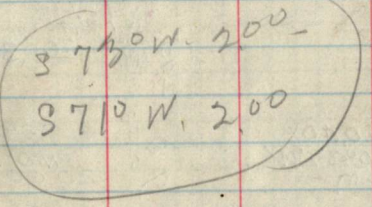 S 73° W. 2.00
S 71° W. 2.00